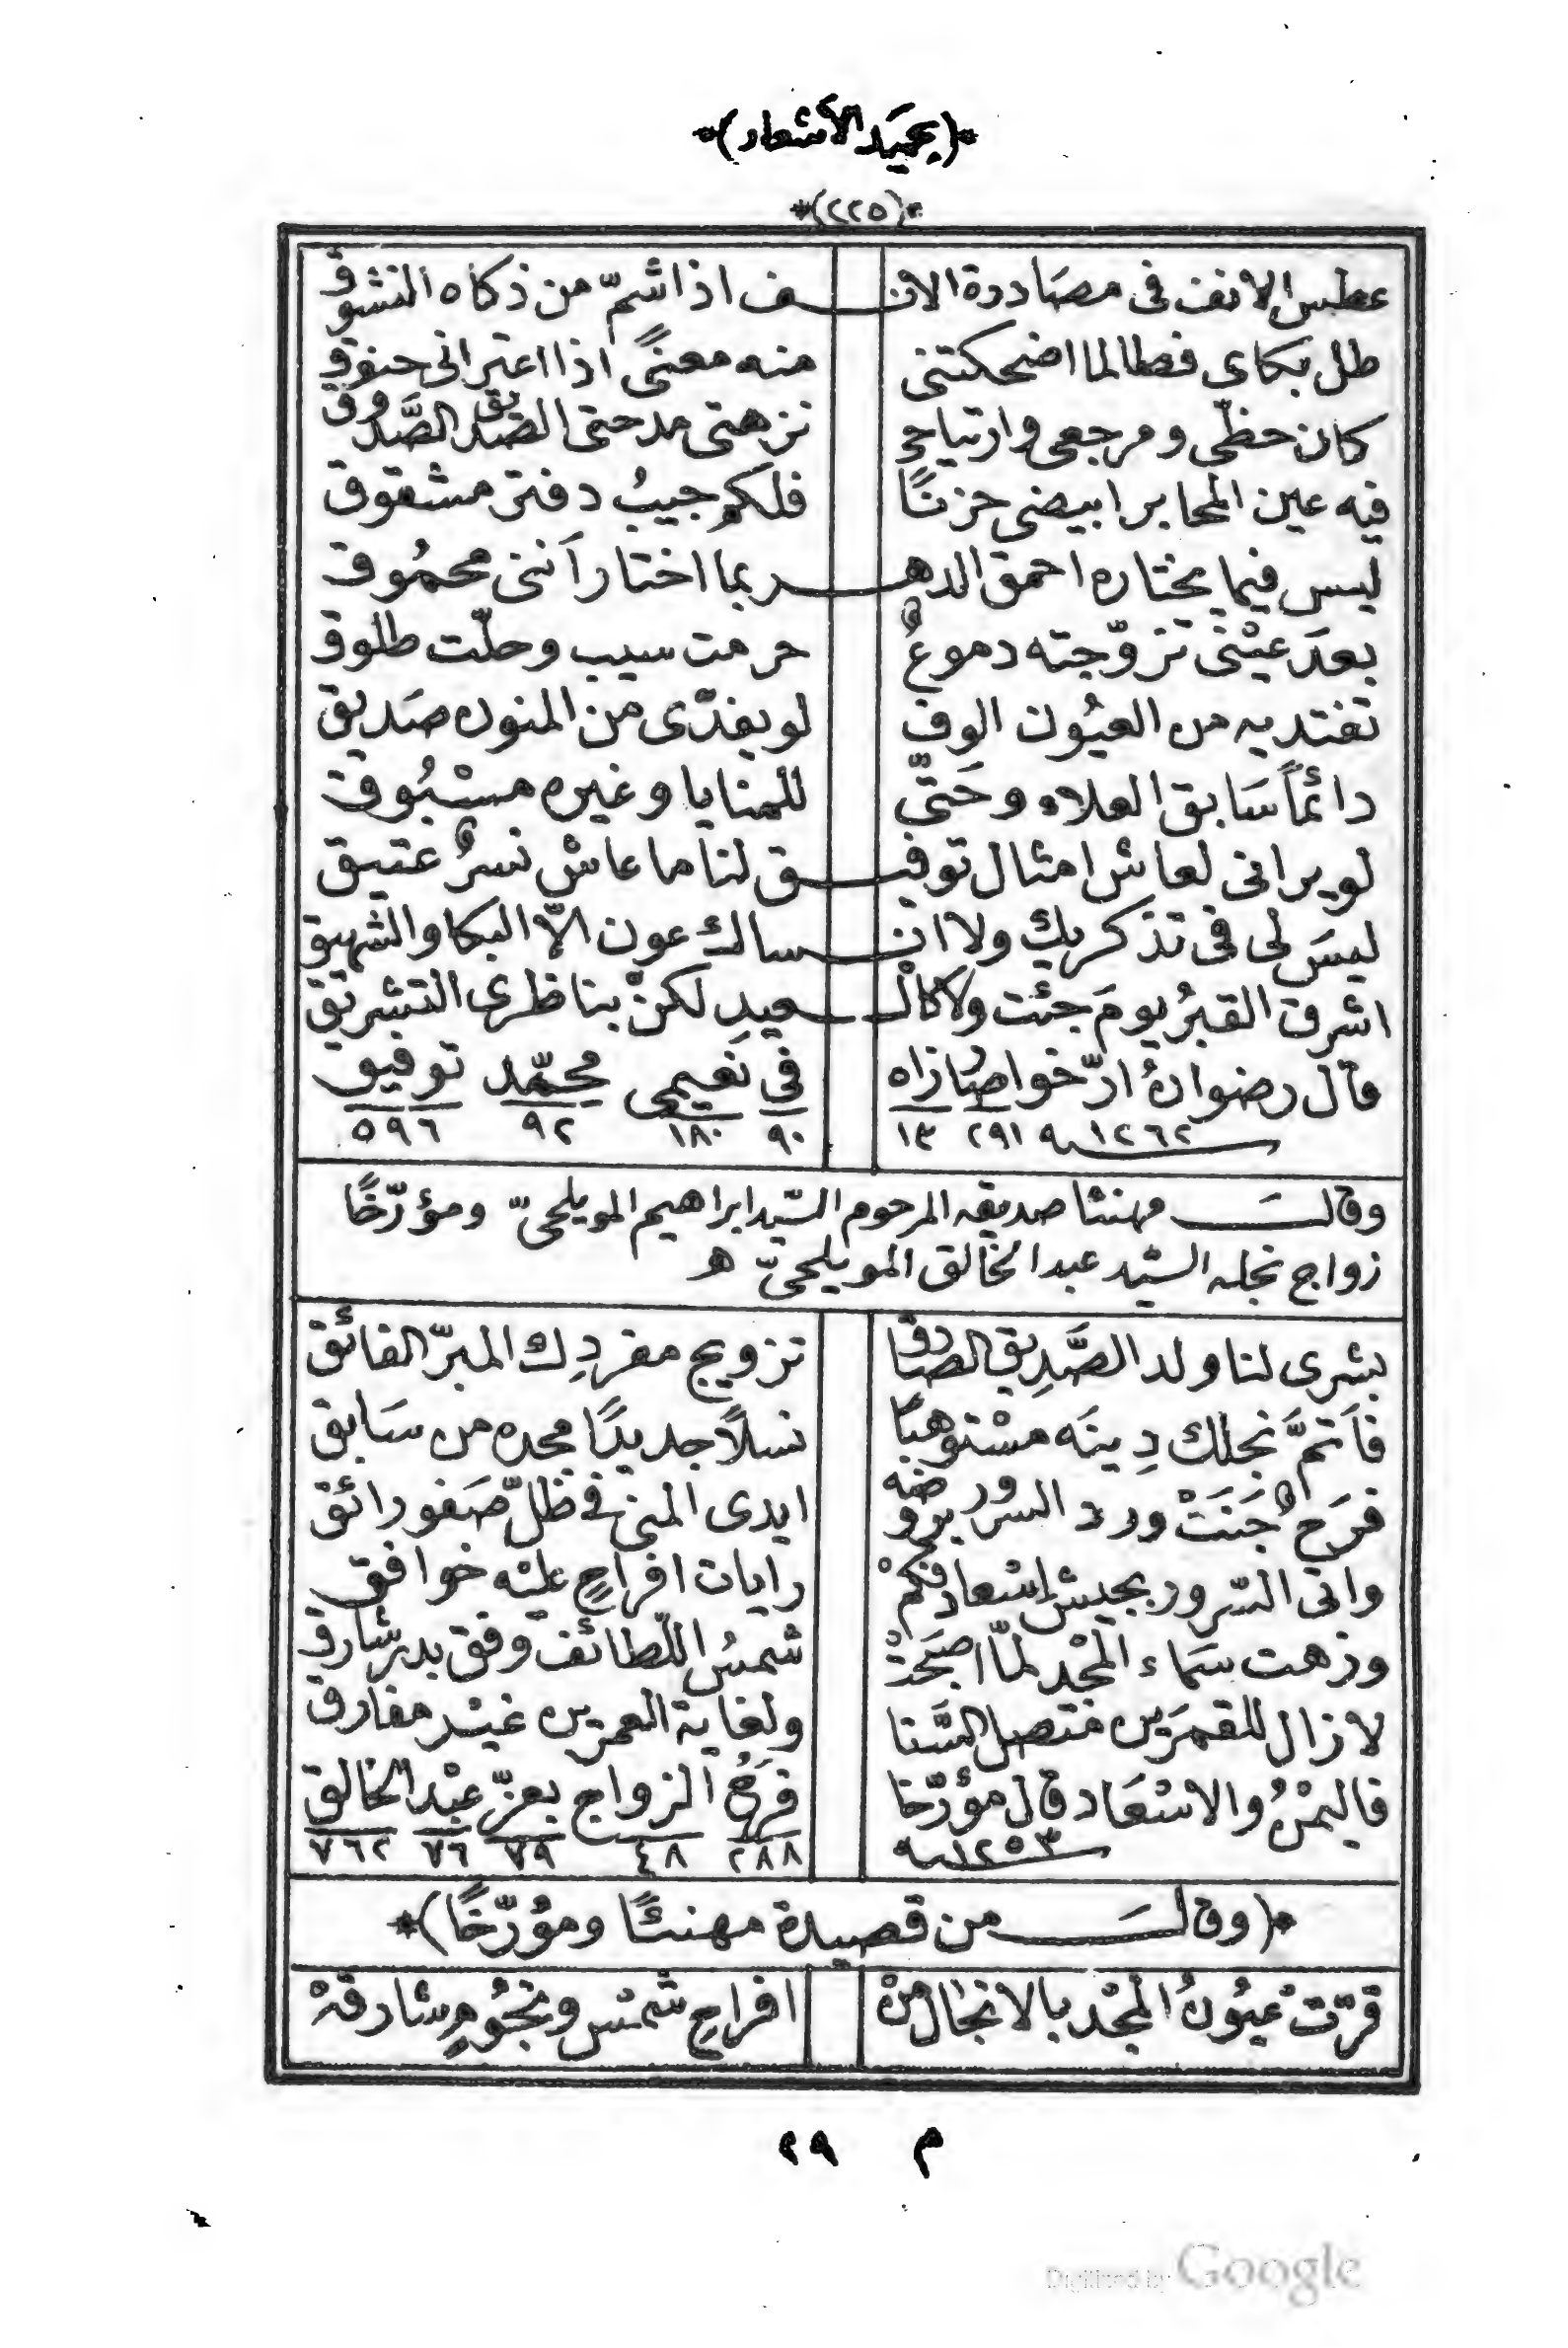 *(بجيَد الأشعار)*
*(٢٢٥)*
عطس الانف فى مصَادرة الانـف اذا شمّ من ذكاه النشوق
طل بكاى فطالما اضحكتنى منه معنىً اذا اعترانى حنوق
كان حظّى ومرجعى وارتياحى نزهتى مدحتى الصديق الصَّدوق
فيه عين المحابر ابيضى حزنًا فلكم جيبُ دفتر مشقوق
ليس فيما يختاره احمق الدهـر بما اختار آننى محمُوق
بعدَ عيْنى تزوّجته دموعٌ حرمت سيب وحلّت طلوق
تفتديه من العيُون الوف لو يفدّى من المنون صَديق
دائماً سَابق العلاء وحَتّى للمنايا وغيره مسْبُوق
لو يرانى لعاش امثال توفيـق لنا ما عاش نسرٌ عتيق
ليسَ لى فى تذكريك ولا انـساك عون الّا البكا والشهيق
اشرق القبرُ يومَ جئت ولا كالـعيدِ لكنْ بناظرى التشريق
قال رضوانهُ ارّخوا صُنازاه فى نعيمى محمّد توفيق
١٢٦٢ـه ٢٩١ ١٣ ٩٠ ١٨٠ ٩٢ ٥٩٦
وقالـَ مهنئا صديقه المرحوم السّيد ابراهيم المويلحىّ ومؤرّخًا
زواج نجله السّيد عبد الخالق المويلحىّ ه
بشرى لنا ولد الصَّدِيق الصادق تزويج مفردِك المبرّ الفائق
فاَتمَّ نجلك دِينَه مسْتوهبًا نسلًا جديدًا مجده من سَابق
فرَحٌ جَنَتْ ورد السرور بروضه ايدى المنى فى ظلّ صَفو رائق
وافى السّرور بجيش إسْعاد فكمْ رايات افراحٍ عليْه خوافق
وزهت سمَاء المجْد لمّا اصبَحَتْ شمسُ اللّطائف وفق بدر شارق
لا زال للقمرَين متصل السَّنا ولغاية العمرين غيْر مفارق
فاليمْنُ والاسْعَاد قال مؤرّخا فرَحُ الزواج بعزّ عبْد الخالق
١٢٥٣ـه ٢٨٨ ٤٨ ٧٩ ٧٦ ٧٦٢
*(وقالـَ من قصيدة مهنئًا ومؤرّخًا)*
قرّتْ عيُونُ المجْد بالانجال منْ افراحِ شمْس ونجُومٍ شارقهْ
م ٢٩
Digitized by Google